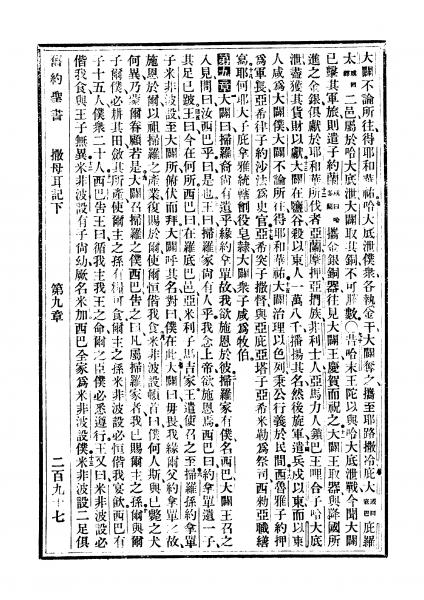 大闢不論所往得耶和華祐哈大底泄僕衆各執金干大闢奪之攜至耶路撒冷底人
太二邑屬於哈大底泄大闢取其銅不可勝數〇昔哈末王陀以與哈大底泄戰今聞大闢
已擊其軍旅則遣子約蘭攜金銀銅器往見大闢王慶賀而祝之大闢王取器與降國所
進之金銀俱獻於耶和華所伐者亞蘭摩押亞捫族非利士人亞馬力人鎖巴王哩合子哈大底
泄盡獲其貨財以獻大闢在鹽谷殺以東人一萬八千播揚其名然後旋軍遣兵戍以東而以東
人咸爲大闢僕大闢不論所往得耶和華祐大闢治理以色列秉公行義於民間西魯雅子約押
爲軍長亞希律子約沙法爲史官亞希突子撒督與亞庇亞塔子亞希米勒爲祭司西勑亞職繕
寫耶何耶大子庇拿雅統轄劊役皂隸大闢衆子咸爲牧伯
第九章大闢曰掃羅裔尚有遺乎緣約拿單故我欲施恩於彼掃羅家有僕名西巴大闢王召之
入見問曰汝西巴乎曰是也王曰掃羅家尚有人乎我念上帝欲施恩焉西巴曰約拿單遺一子
其足已跛王曰今在何所西巴曰在羅底巴亞米利子馬吉家王遣使召之至掃羅孫約拿單
子米非波設至大闢所俯伏而拜大闢呼其名對曰僕在此大闢曰毋畏我緣爾父約拿單之故
施恩於爾以祖掃羅之產業復賜於爾使爾恒偕我食米非波設頓首曰僕何人斯與已斃之犬
何異乃蒙眷顧若是大闢召掃羅之僕西巴告之曰凡屬掃羅家者我已賜爾主之孫爾與爾
子爾僕必耕其田斂其所產使爾主之孫有糧可食爾主之孫米非波設必恒偕我宴飲西巴有
子十五人僕衆二十人西巴告王曰循我主我王之命爾之臣僕必悉遵行王又曰米非波設必
偕我食與王子無異米非波設有子尚幼厥名米加西巴全家爲米非波設僕米非波設二足俱
舊約聖書 撒母耳記下 第九章 二百九十七